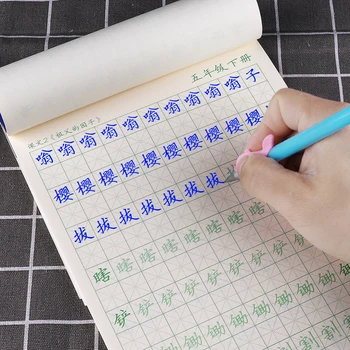 五年级下册
课文2《祖父的园子》
嗡嗡嗡嗡嗡嗡嗡嗡嗡子
樱樱樱樱樱樱樱樱樱
拔拔拔拔拔拔拔
瞎瞎瞎瞎瞎瞎瞎瞎瞎
铲铲铲铲铲铲铲铲铲
锄锄锄锄锄锄锄锄
割割